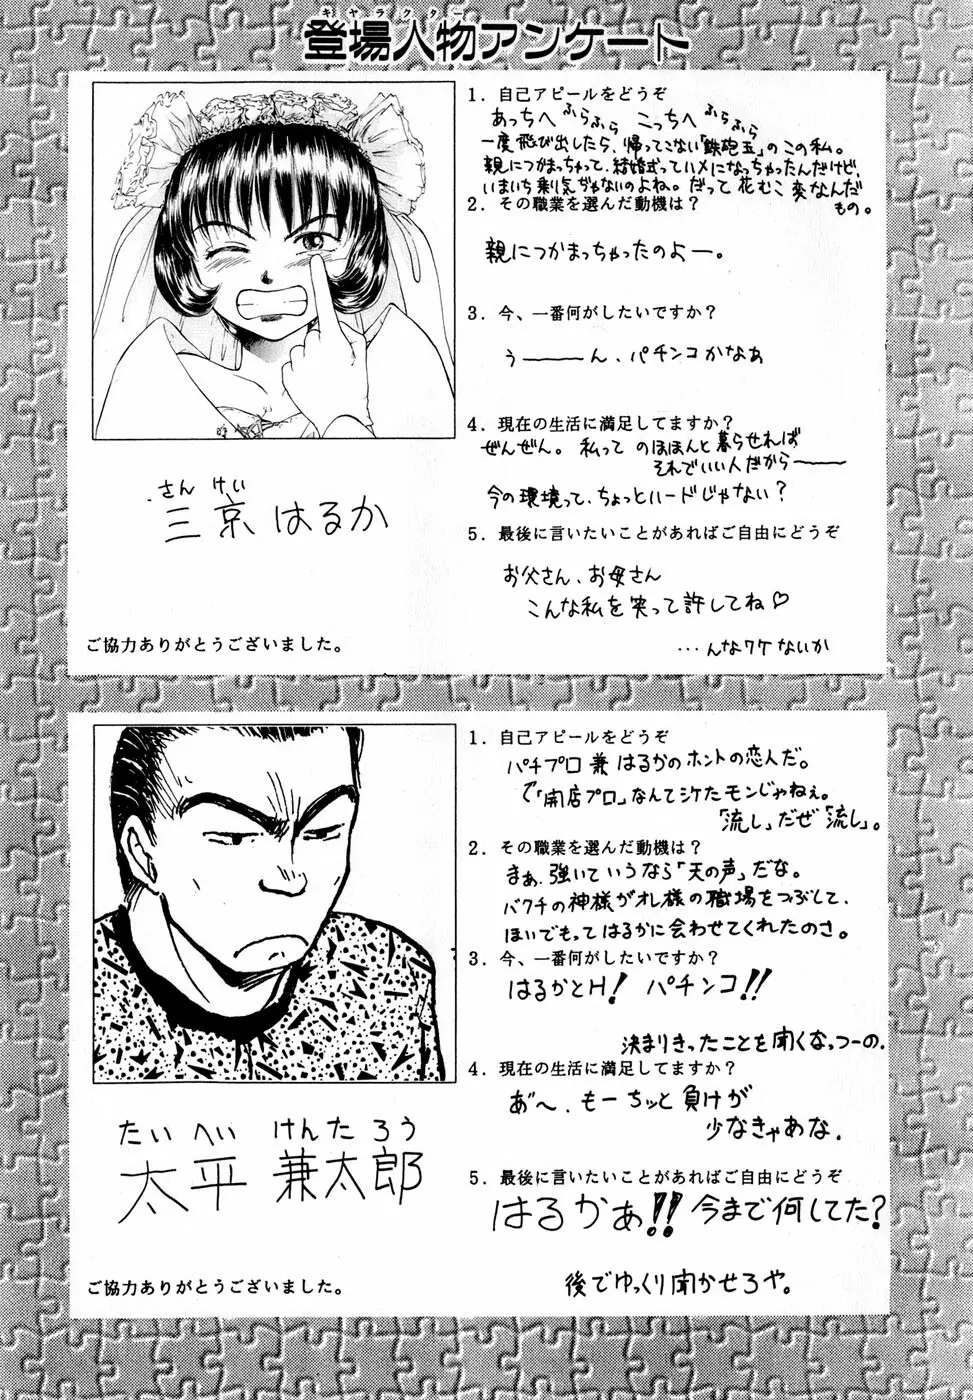 キャラクター
登場人物アンケート
1. 自己アピールをどうぞ
あっちへ ふらふら こっちへ ふらふら
一度飛び出したら、帰ってこない「鉄砲玉」のこの私。
親につかまっちゃって、結婚式ってハメになっちゃったんだけど、
いまいち乗り気がないのよね。だって 花むこ 変なんだ
もの。
2. その職業を選んだ動機は?
親につかまっちゃったのよー。
3. 今、一番何がしたいですか?
う――――ん、パチンコかなあ
4. 現在の生活に満足してますか?
ぜんぜん。私って のほほんと暮らせれば
それでいい人だから――――
今の環境って、ちょっとハードじゃない?
5. 最後に言いたいことがあればご自由にどうぞ
お父さん、お母さん
こんな私を笑って許してね♡
…んなワケないか
さん けい
三京 はるか
ご協力ありがとうございました。
1. 自己アピールをどうぞ
パチプロ 兼 はるかのホントの恋人だ。
で「開店プロ」なんてシケたモンじゃねえ。
「流し」だぜ「流し」。
2. その職業を選んだ動機は?
まぁ、強いていうなら「天の声」だな。
バクチの神様がオレ様の職場をつぶして、
ほいでもってはるかに会わせてくれたのさ。
3. 今、一番何がしたいですか?
はるかとH! パチンコ!!
決まりきったことを聞くなっつーの。
4. 現在の生活に満足してますか?
あ゛〜、もーちッと負けが
少なきゃあな.
5. 最後に言いたいことがあればご自由にどうぞ
はるかぁ!! 今まで何してた?
後でゆっくり聞かせろや。
たい へい けんたろう
太平 兼太郎
ご協力ありがとうございました。